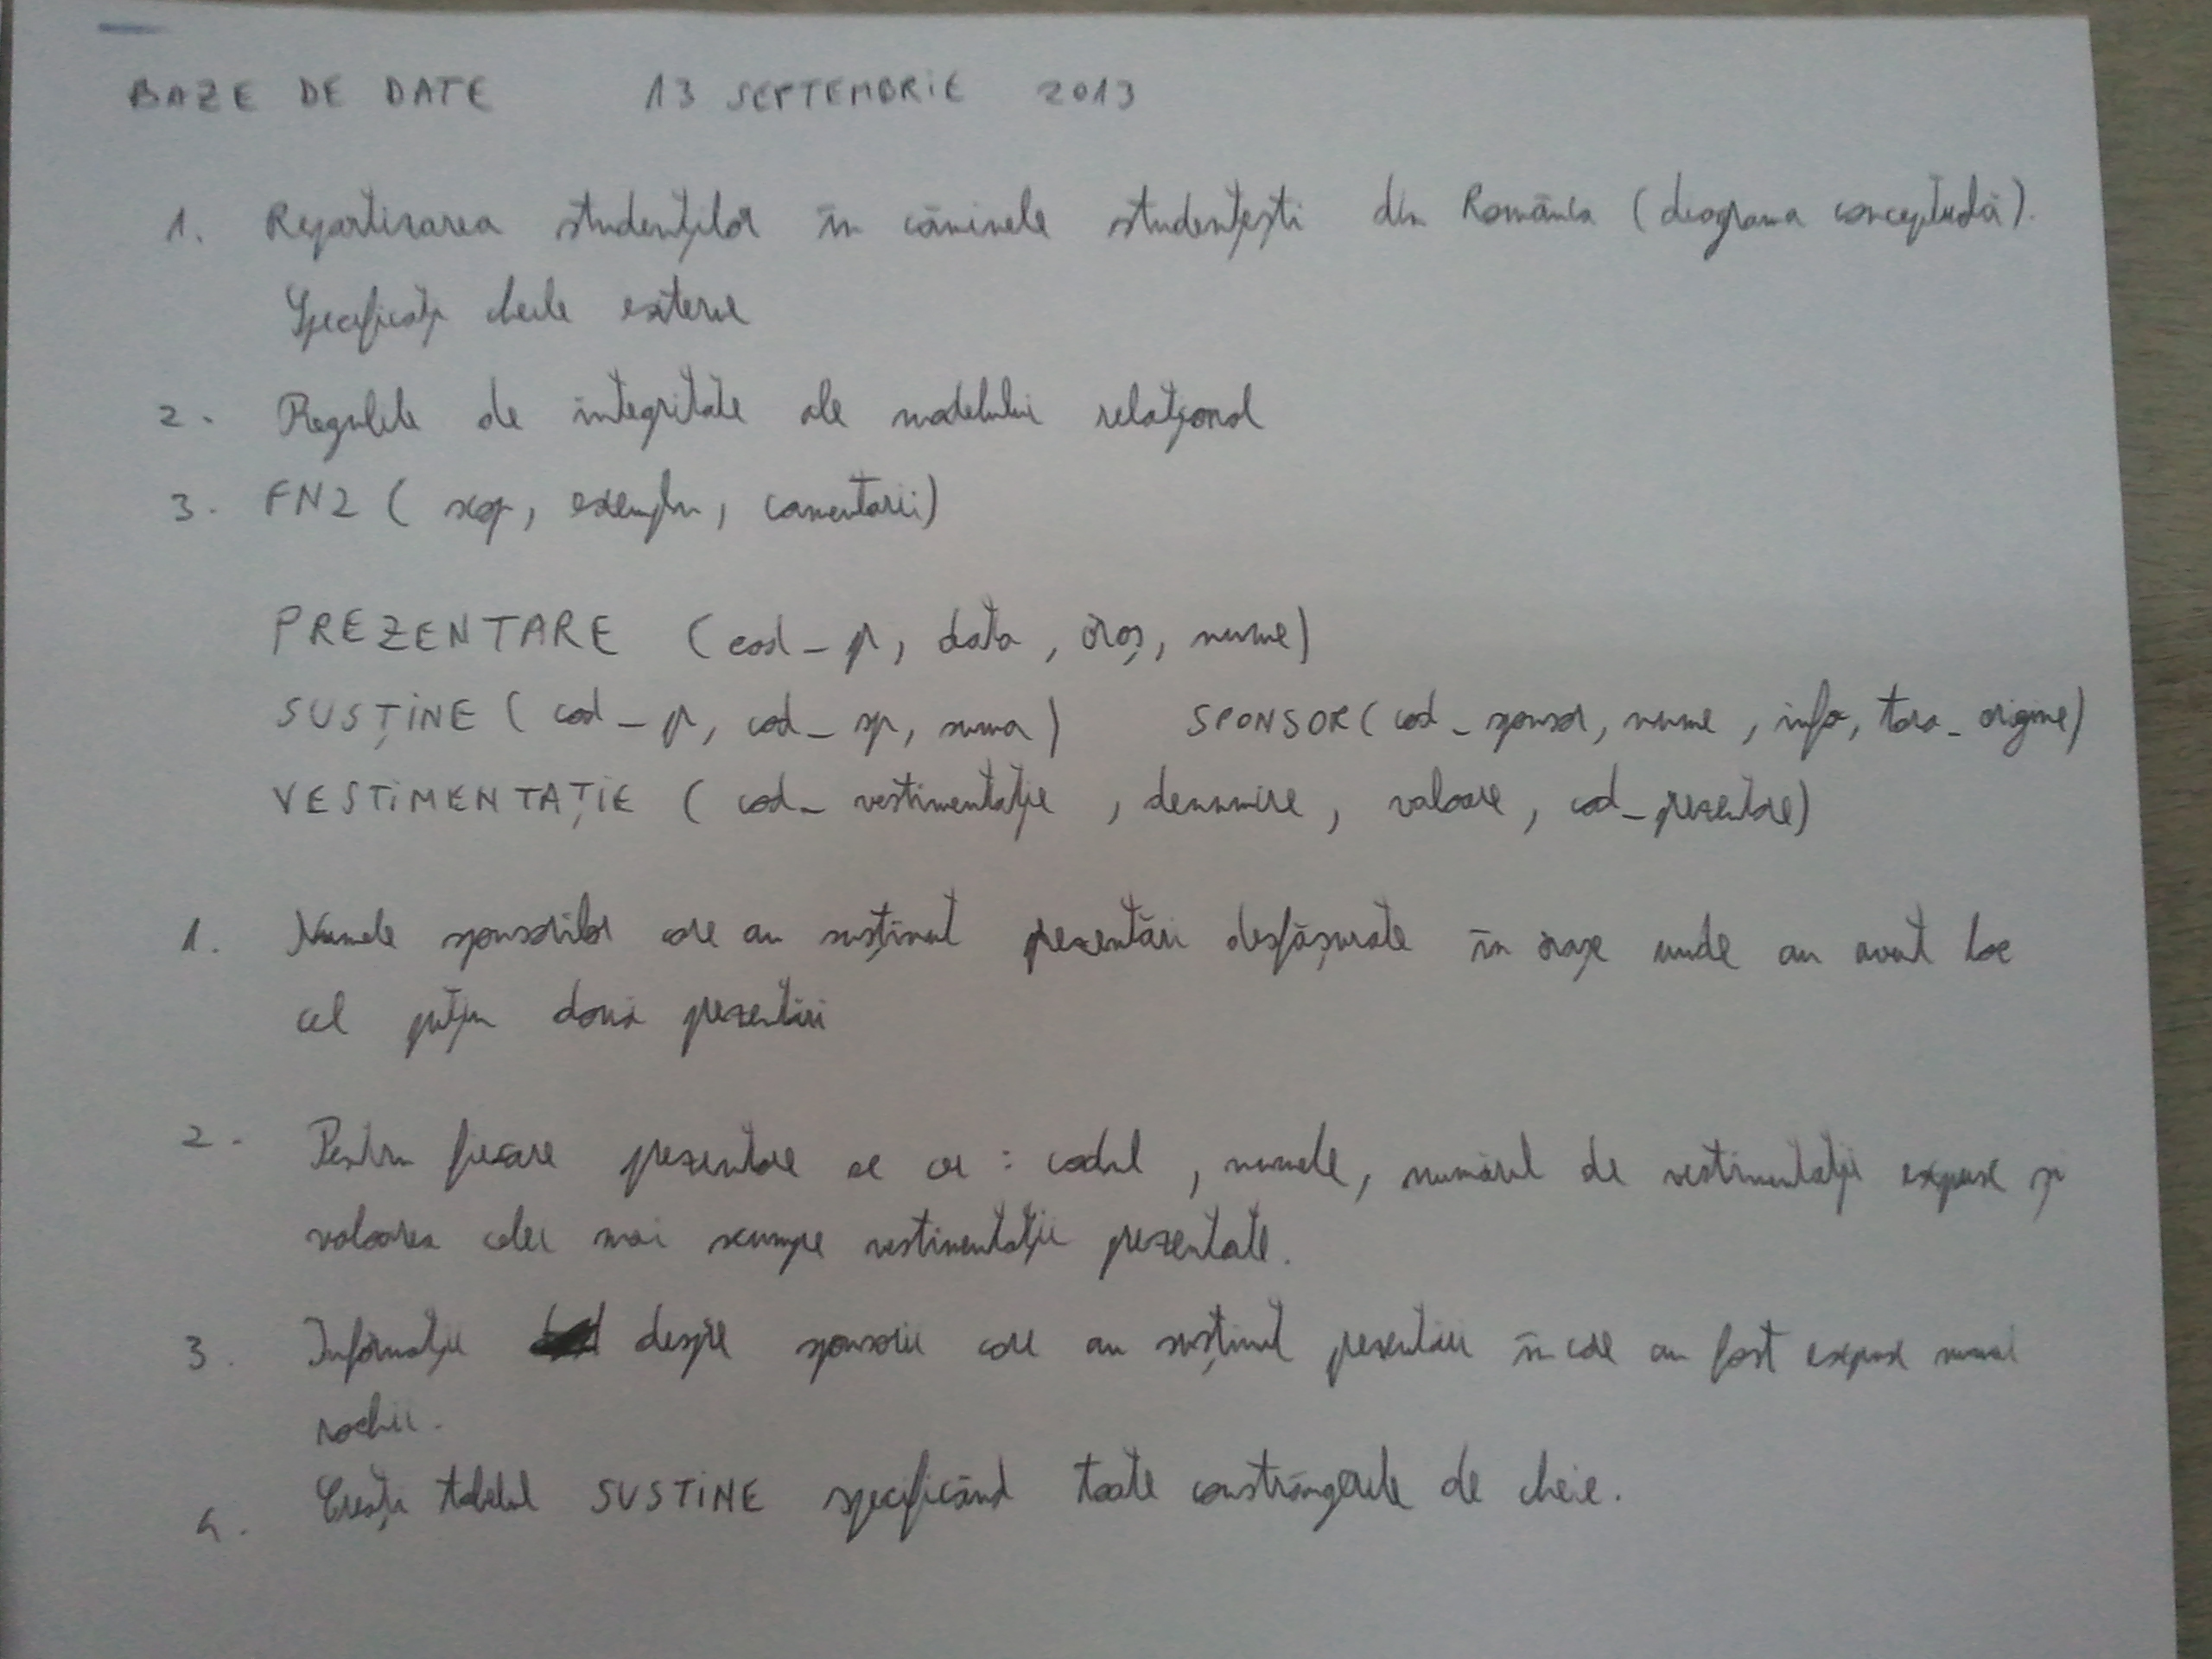 BAZE DE DATE 13 SEPTEMBRIE 2013
1. Repartizarea studenților în căminele studențești din România (diagrama conceptuală).
Specificați cheile externe
2. Regulile de integritate ale modelului relațional
3. FN2 (scop, exemplu, comentarii)
PREZENTARE (cod_pr, data, oraș, nume)
SUSȚINE (cod_pr, cod_sp, suma) SPONSOR (cod_sponsor, nume, info, tara_origine)
VESTIMENTAȚIE (cod_vestimentație, denumire, valoare, cod_prezentare)
1. Numele sponsorilor care au susținut prezentări desfășurate în orașe unde au avut loc
cel puțin două prezentări
2. Pentru fiecare prezentare se cer: codul, numele, numărul de vestimentații expuse și
valoarea celei mai scumpe vestimentații prezentate.
3. Informații despre sponsorii care au susținut prezentări în care au fost expuse numai
rochii.
4. Creați tabelul SUSTINE specificând toate constrângerile de cheie.